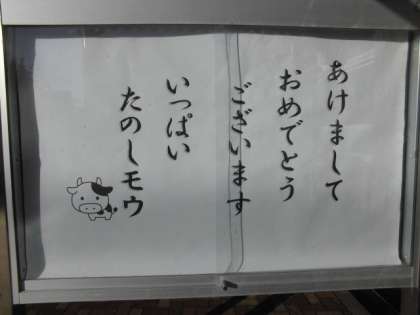 あけまして
おめでとう
ございます
いっぱい
たのしモウ